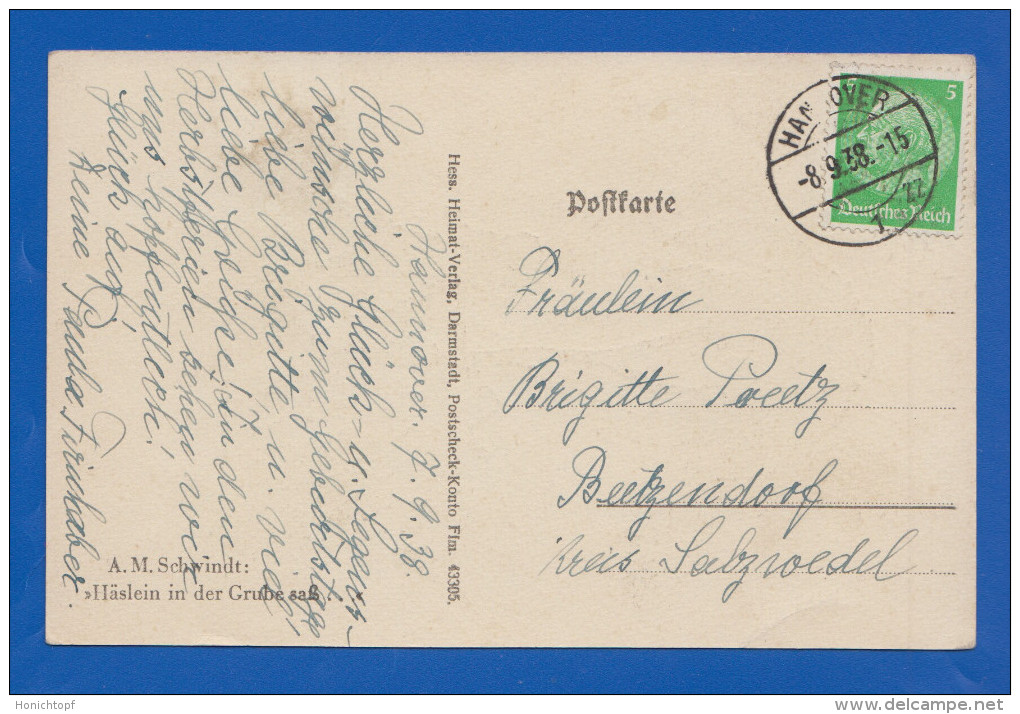 Hannover. 7.9.38.
Herzliche Glück- u. Segens-
wünsche zum Geburtstag
liebe Brigitte u. viele
liebe Grüße! In den
Herbstferien sehen wir
uns hoffentlich!
Glück auf!
Deine Paula Firnhaber.
A. M. Schwindt:
»Häslein in der Grube saß . . .«
Hess. Heimat-Verlag, Darmstadt, Postscheck-Konto Ffm. 43305.
Postkarte
HANNOVER
-8.9.38.-15
1
ZZ
5
5
Deutsches Reich
Fräulein
Brigitte Preetz
Beetzendorf
Kreis Salzwedel
Honichtopf
delcampe.net